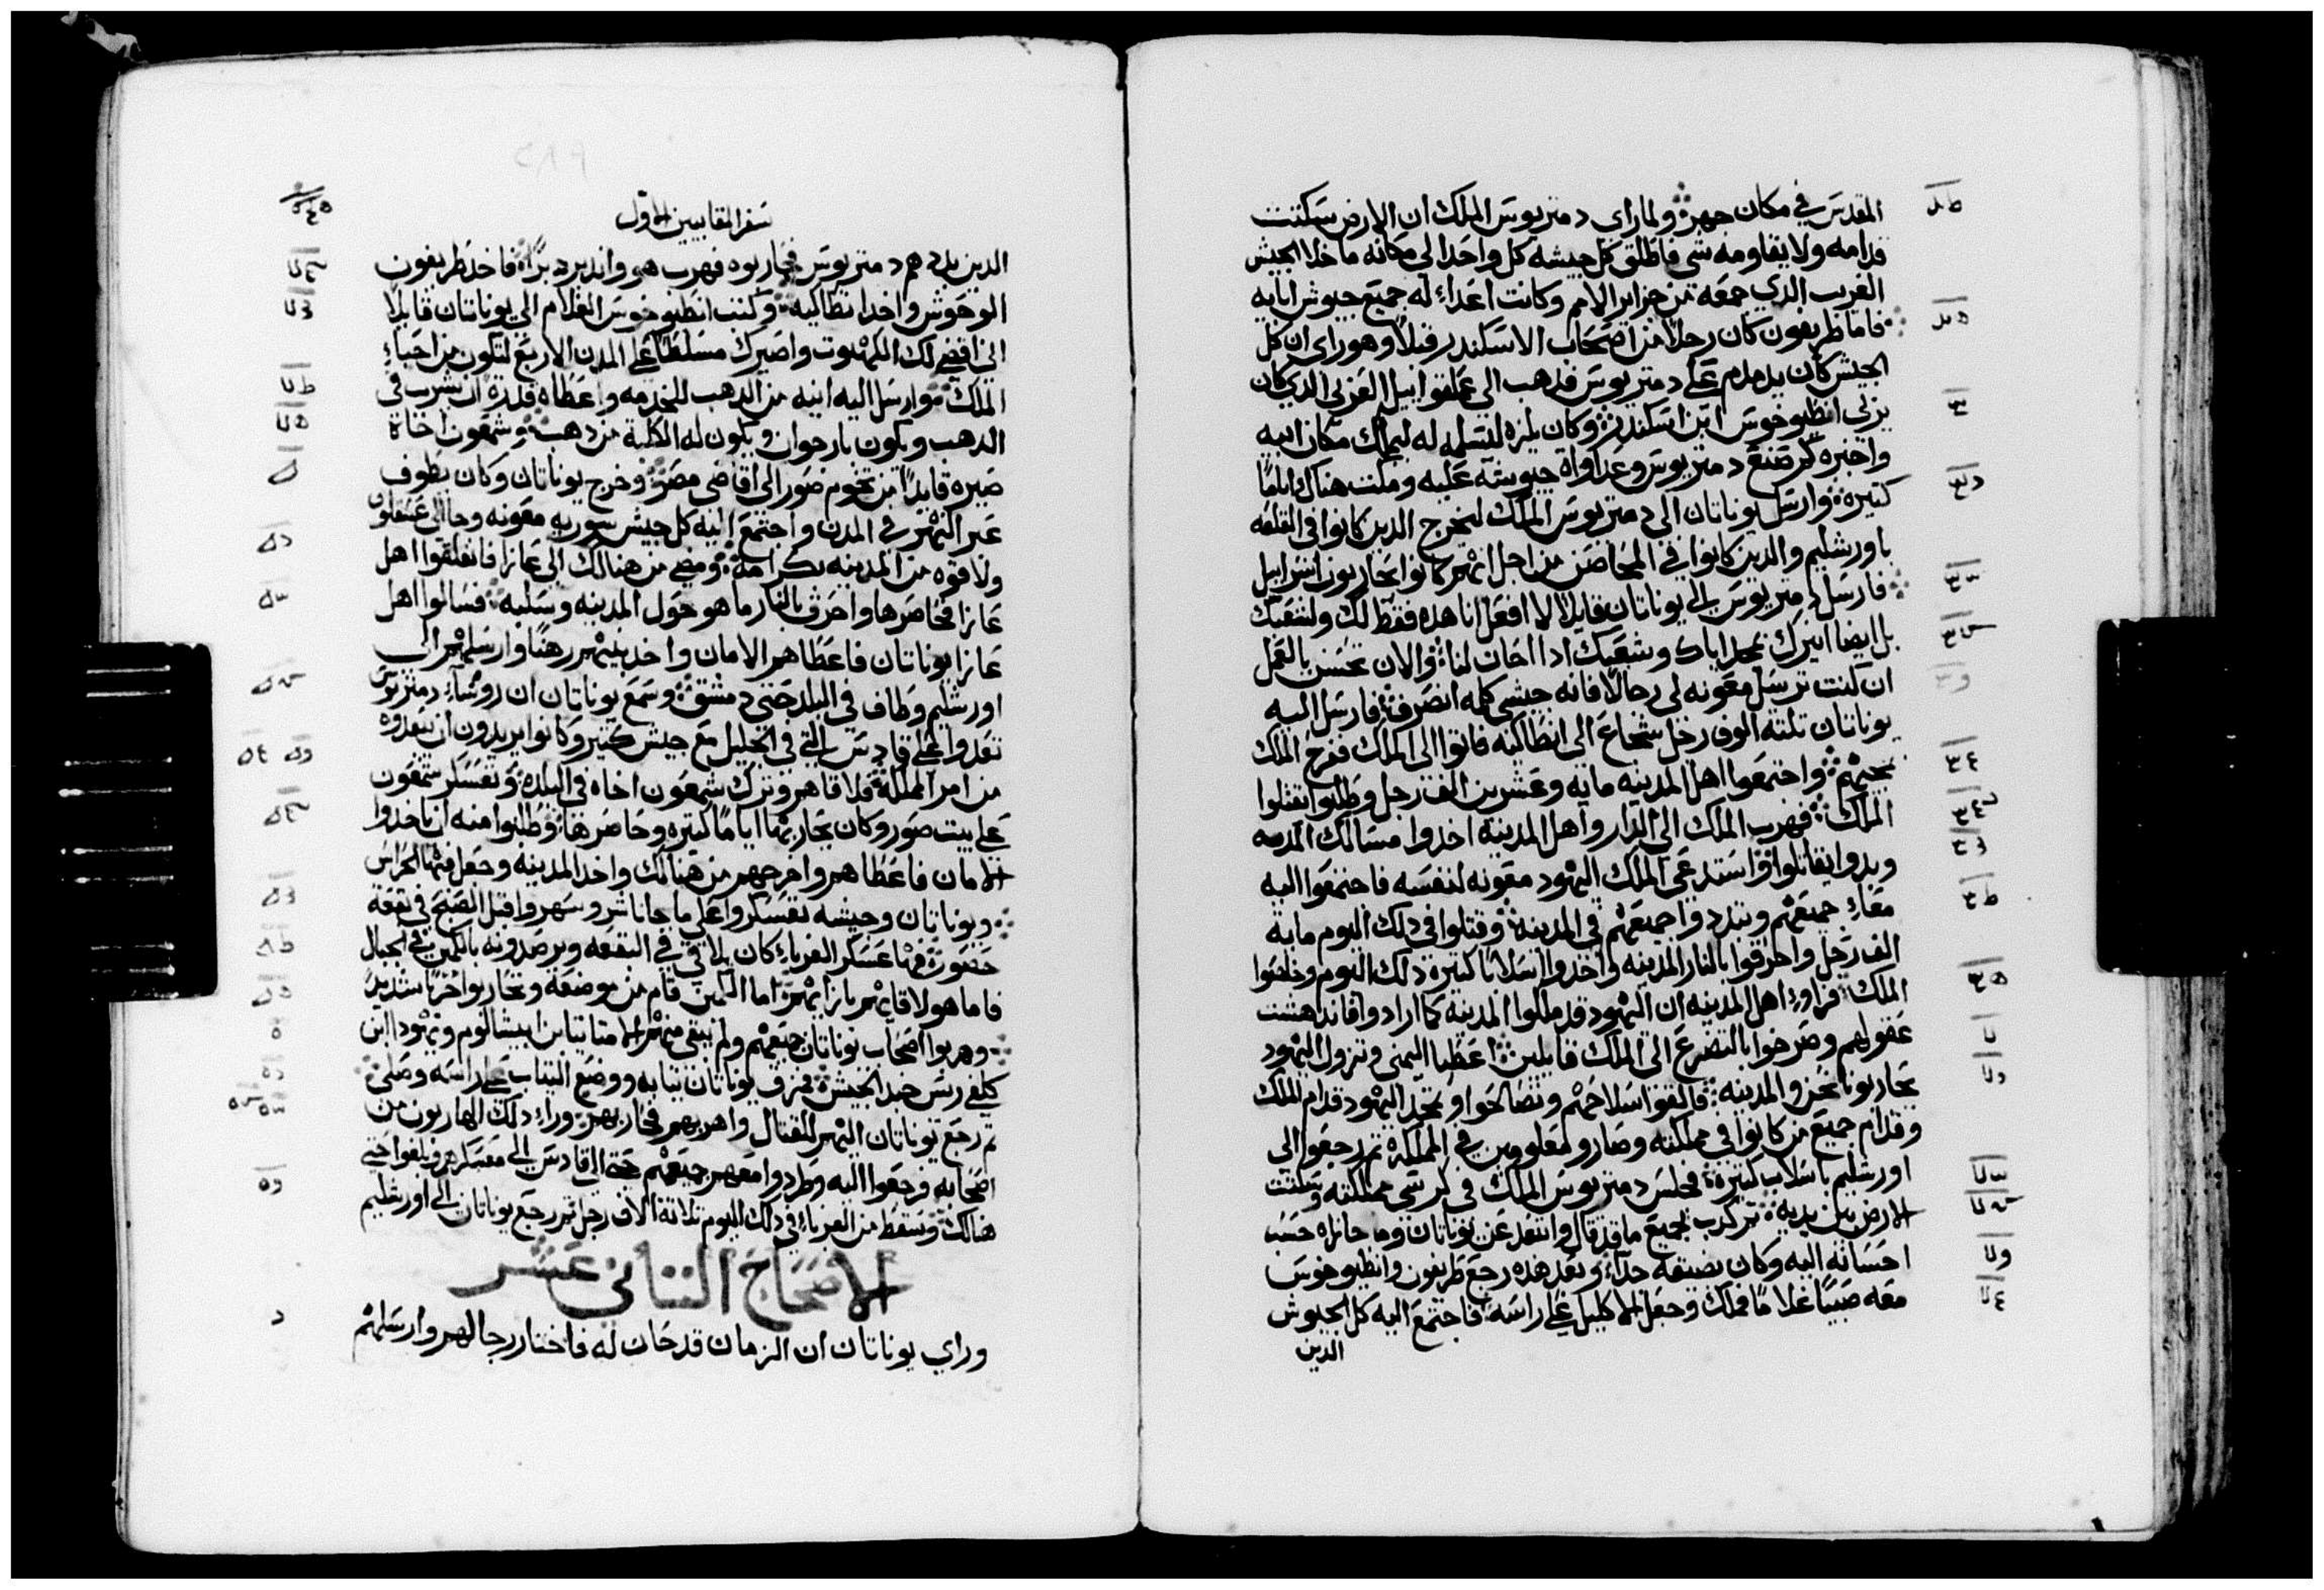 المقدس في مكان جهر ولما راي دمتريوس الملك ان الارض سكنت
قدامه ولا يقاومه شي فاطلق كل جيشه كل واحدا الي مكانه ما خلا الجيش
الغريب الذي جمعه من جزاير الامم وكانت اعداء له جميع جيوش ابايه
فاما طريفون كان رجلا من اصحاب الاسكندر قبلا وهو راي ان كل
الجيش كان يدمدم علي دمتريوس فذهب الي عملقوابيل العربي الذي كان
يربي انطيوخوس ابن اسكندر وكان يلزه ليسلمه له ليملك مكان ابيه
واخبره كم صنع دمتريوس وعداواة جيوشه عليه ومكث هناك اياما
كتيرة وارسل يوناتان الي دمتريوس الملك ليخرج الدين كانوا في القلعه
باورشليم والدين كانوا في المحاصن من اجل انهم كانوا يحاربون اسراييل
فارسل دمتريوس الي يوناتان قايلا لا افعل انا هده فقط لك ولشعبك
بل ايضا اني اياك وشعبك ادا احان لنا والان تحسن بالعمل
ان كنت ترسل معونه لي رجالا فانه جيشي كله انصرف فارسل اليه
يوناتان تلتة الوف رجل شجاع الي انطاكيه فاتوا الي الملك ففرح الملك
بمجيهم واجتمعوا اهل المدينه مايه وعشرين الف رجل وطلبوا يقتلوا
الملك فهرب الملك الي الدار واهل المدينه اخدوا مسالك المدينه
وبدوا يقاتلوا واستدعي الملك اليهود معونه لنفسه فاجتمعوا اليه
معاء جميعهم وتبددوا جميعهم في المدينه وقتلوا في دلك اليوم ماية
الف رجل واحرقوا بالنار المدينه واخدوا اسلابا كتيرة دلك اليوم وخلصوا
الملك فراوا اهل المدينه ان اليهود قد ملكوا المدينه كما ارادوا فاندهشت
عقولهم وصرخوا بالتضرع الي الملك قايلين اعطنا اليمني وتزول اليهود
تحاربونا نحن والمدينه فالقوا سلاحهم وتصالحوا وتمجد اليهود قدام الملك
وقدام جميع من كانوا في مملكته وصاروا معلومين في المملكه تم رجعوا الي
اورشليم باسلاب كتيرة فجلس دمتريوس الملك في كرسي مملكته وسكنت
الارض بين يديه تم كدب بجميع ما قد قال وابتعد عن يوناتان وما جازاه حسب
احسانه اليه وكان يضيقه جدا وبعد هده رجع طريفون وانطيوخوس
معه صبيا غلاما فملك وجعل الاكليل علي راسه فاجتمع اليه كل الجيوش
الدين
سفر المقابيين الاول
الدين بددهم دمتريوس فحاربوه فهرب هو واندبر دبرا فاخد طريفون
الوحوش واخد انطاكيه وكتب انطيوخوس الغلام الي يوناتان قايلا
اني اقضي لك الكهنوت واصيرك مسلطا علي المدن الاربع لتكون من احباء
الملك وارسل اليه انيه من الدهب للخدمه واعطاه قدرة ان يشرب في
الدهب ويكون بارجوان ويكون له الكلبة من دهب وشمعون اخاة
صيره قايدا من تخوم صور الي اقاصي مصر وخرج يوناتان وكان يطوف
عبر النهر في المدن واجتمع اليه كل جيش سوريه معونه وجا الي عسقلون
ولاقوه من المدينه بكرامة ومضي من هنالك الي غازا فانغلقوا اهل
غازا فحاصرها واحرق بالنار ما هو حول المدينه وسلبه فسالوا اهل
غازا يوناتان فاعطاهم الامان واخد بنيهم رهنا وارسلهم الي
اورشليم وطاف في البلد حتي دمشق وسمع يوناتان ان روساء دمتريوس
تعدوا علي قادس التي في الجليل مع جيش كتير وكانوا يريدون ان يبعدوه
من امر المملكة فلاقاهم وترك شمعون اخاه في البلدة وتعسكر شمعون
علي بيت صور وكان يحاربها اياما كتيره وحاصرها وطلبوا منه ان ياخدوا
الامان فاعطاهم واخرجهم من هنالك واخد المدينه وجعل فيها الحراس
ويوناتان وجيشه تعسكروا علي ما جاناشر وسهروا قبل الصبح في بقعة
حصور فهنا عسكر الغرباء كان يلاقي في البقعه ويرصدونه بالكمين في الجبال
فاما هولا قايهم بازايهم اما الكمين قام من موضعه وتحاربوا حربا شديد
وهربوا اصحاب يوناتان جميعهم ولم يبقي منهم الا متاتيا بن ابيشالوم ويهودا ابن
كلفي ريس جند الجيش فمزق يوناتان تيابه ووضع التراب علي راسه وصلي
تم رجع يوناتان اليهم للقتال واهربهم فحاربهم وراء دلك الهاربون من
اصحابه فرجعوا اليه وطردوا معهم جميعهم حتي الي قادس الي معسكرهم وبلغوا حتي
هنالك وسقط من الغرباء في دلك اليوم تلاتة الاف رجل تم رجع يوناتان الي اورشليم
الاصحاح التاني عشر
وراي يوناتان ان الزمان قد حان له فاختار رجالا لهم وارسلهم